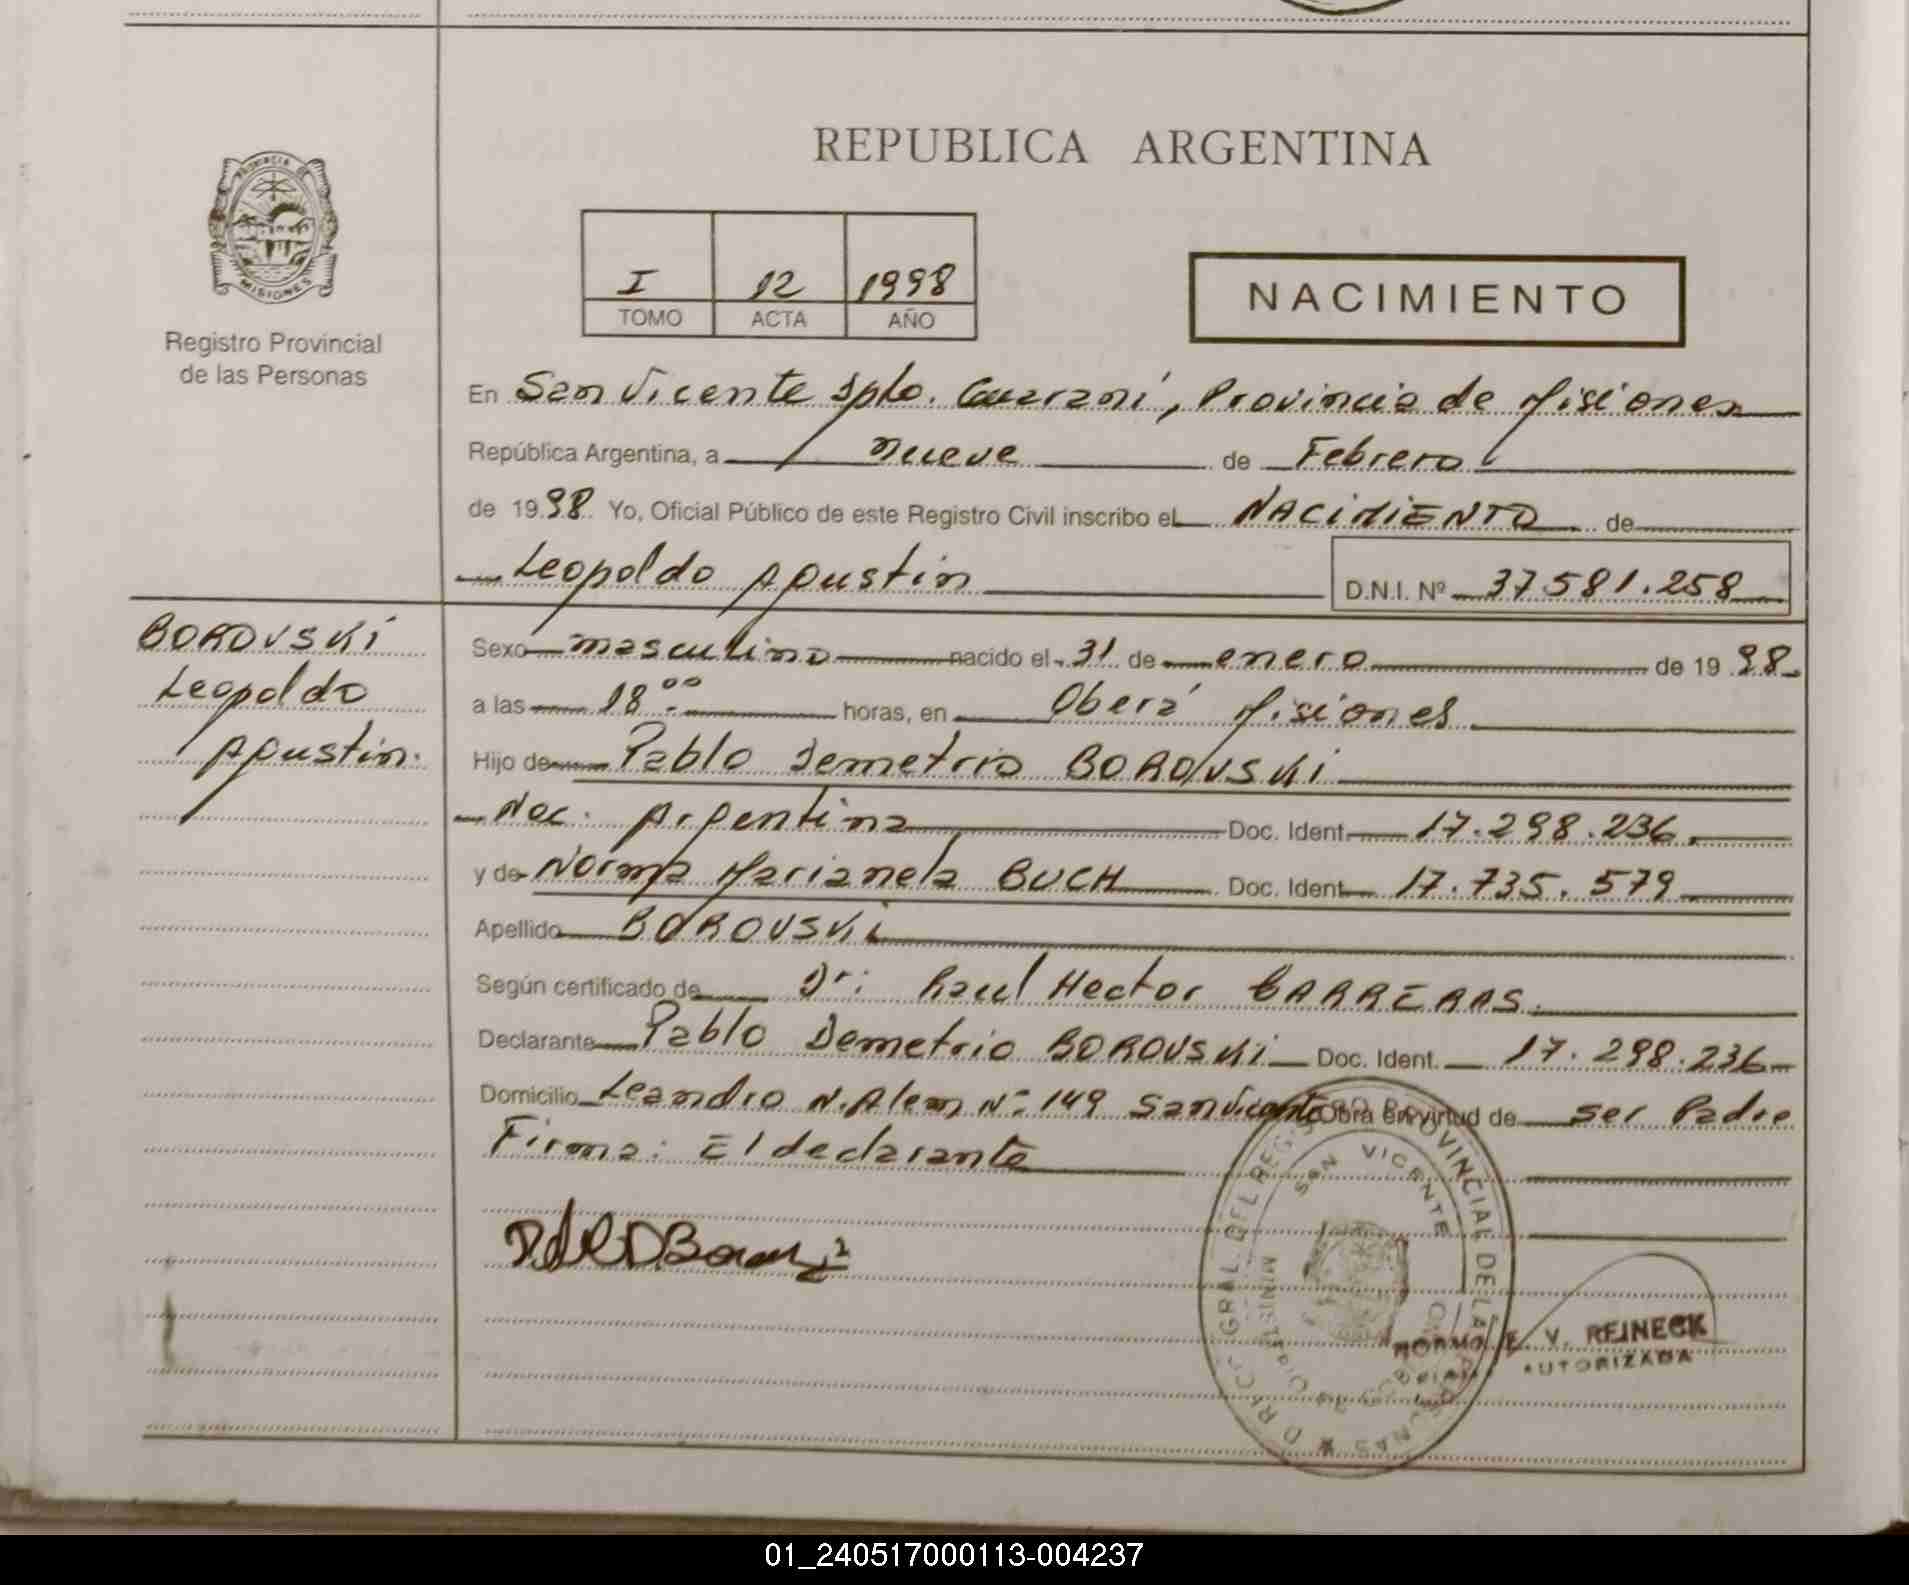 REPUBLICA ARGENTINA
PROVINCIA DE MISIONES
Registro Provincial
de las Personas
I 12 1998
TOMO ACTA AÑO
NACIMIENTO
En San Vicente Dpto. Guaraní, Provincia de Misiones
República Argentina, a nueve de Febrero
de 1998 Yo, Oficial Público de este Registro Civil inscribo el NACIMIENTO de
Leopoldo Agustin D.N.I. Nº 37581.258
BOROVSKI
Leopoldo
Agustin.
Sexo masculino nacido el 31 de enero de 1998
a las 18:00 horas, en Oberá Misiones
Hijo de Pablo Demetrio BOROVSKI
Nac. Argentina Doc. Ident. 17.298.236.
y de Norma Marianela BUCH Doc. Ident. 17.735.579
Apellido BOROVSKI
Según certificado de Dr: Raul Hector CARRERAS.
Declarante Pablo Demetrio BOROVSKI Doc. Ident. 17.298.236
Domicilio Leandro N. Alem Nº 149 San Vicente Obra en virtud de ser Padre
Firma: El declarante
SAN VICENTE
E. V. REINECK
AUTORIZADA
01_240517000113-004237